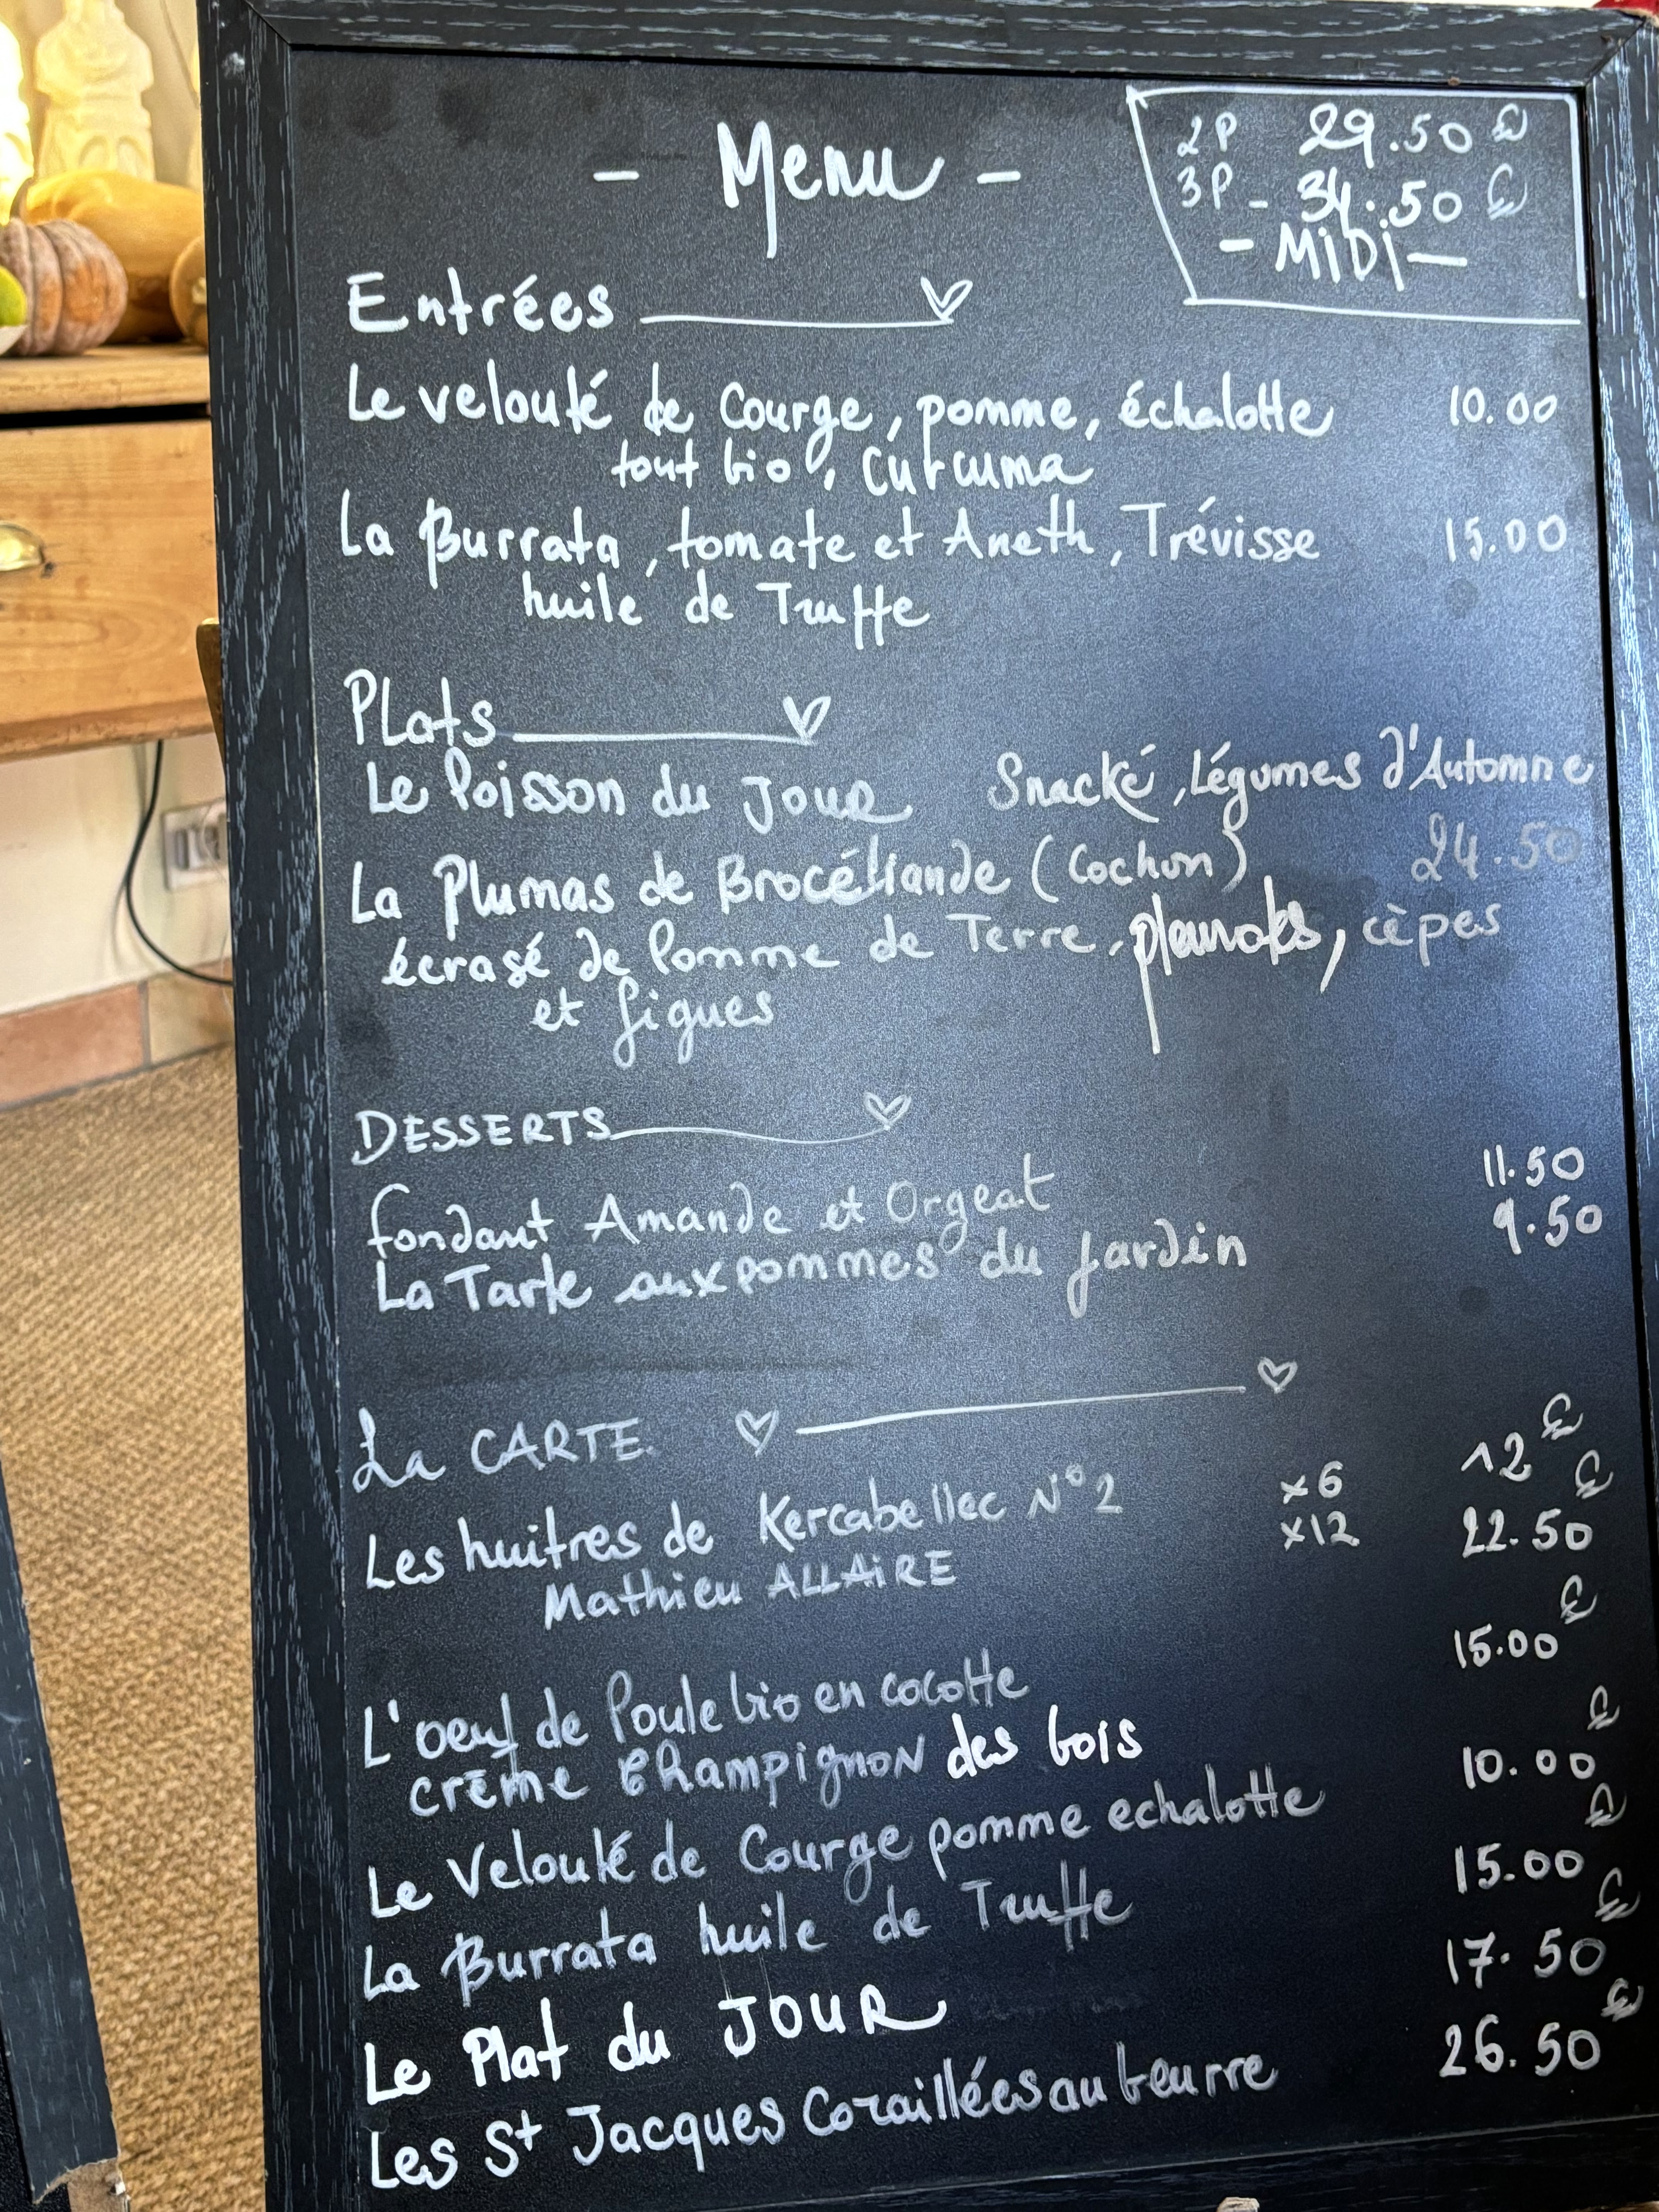 - Menu -
2P 29.50 €
3P - 34.50 €
- MiDi -
Entrées
Le velouté de Courge, pomme, échalotte 10.00
tout bio, Curcuma
La Burrata, tomate et Aneth, Trévisse 15.00
huile de Truffe
Plats
Le Poisson du JOUR Snacké, Légumes d'Automne
La Plumas de Brocéliande (Cochon) 24.50
écrasé de Pomme de Terre, pleurotes, cèpes
et figues
DESSERTS
fondant Amande et Orgeat 11.50
La Tarte aux pommes du jardin 9.50
La CARTE.
Les huitres de Kercabellec N°2 x6 12 €
x12 22.50 €
Mathieu ALLAiRE
L'oeuf de Poule bio en cocotte 15.00 €
crème Champignon des bois
Le Velouté de Courge pomme echalotte 10.00 €
La Burrata huile de Truffe 15.00 €
Le Plat du JOUR 17.50 €
Les St Jacques Coraillées au beurre 26.50 €